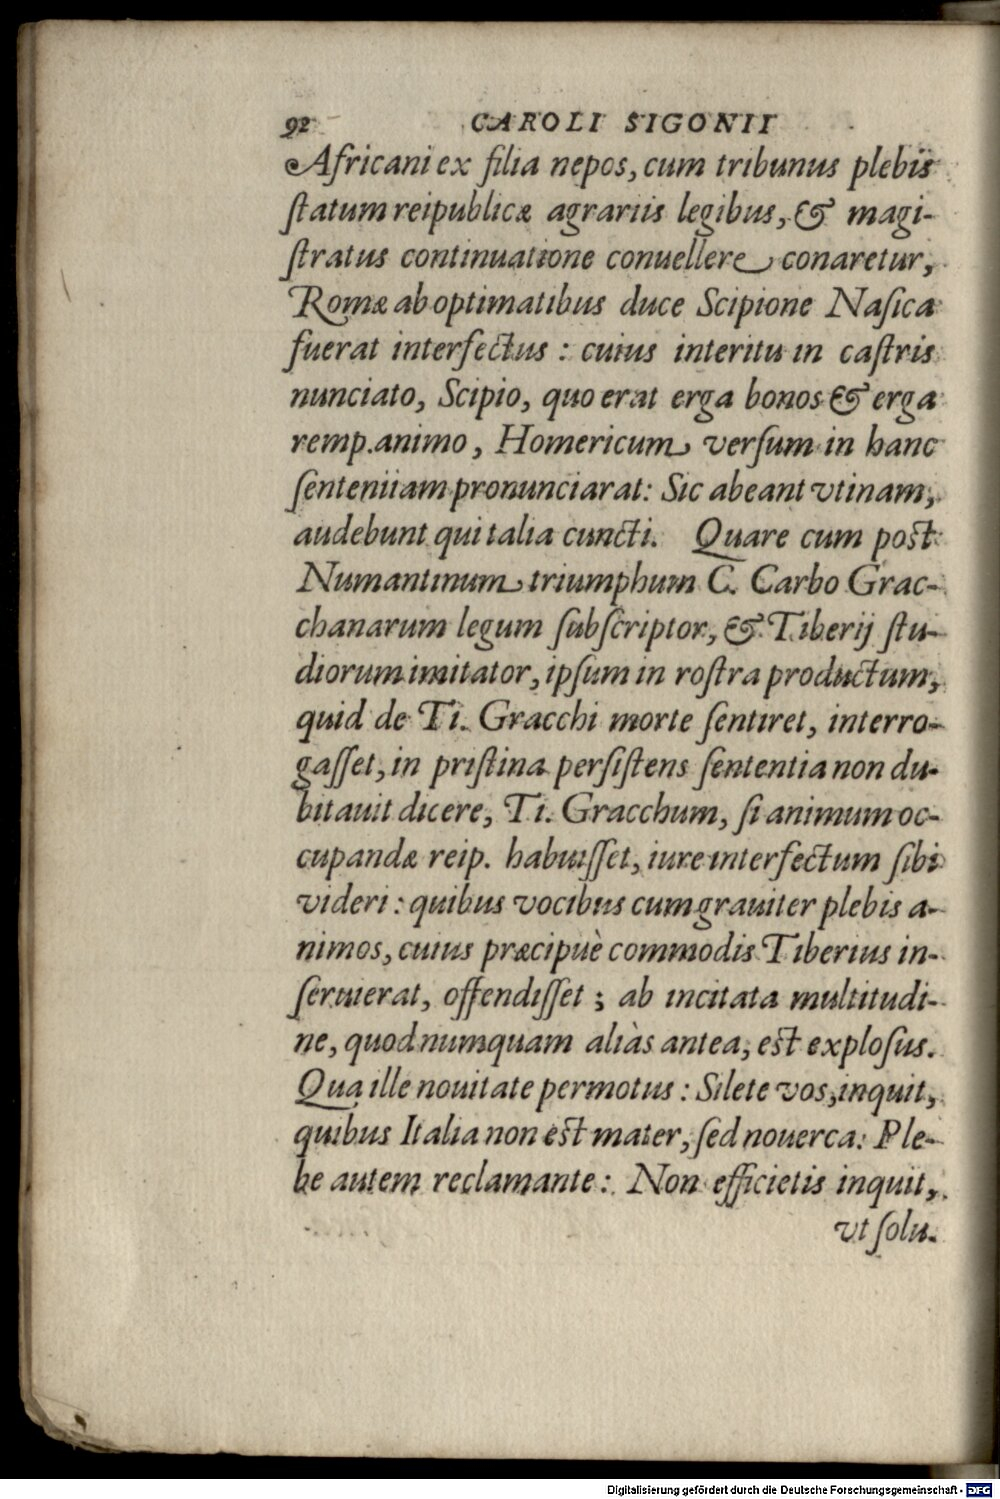 92 CAROLI SIGONII
Africani ex filia nepos, cum tribunus plebis
ſtatum reipublicæ agrariis legibus, & magi-
ſtratus continuatione conuellere conaretur,
Romæ ab optimatibus duce Scipione Naſica
fuerat interfectus : cuius interitu in caſtris
nunciato, Scipio, quo erat erga bonos & erga
remp. animo, Homericum verſum in hanc
ſenteniiam pronunciarat: Sic abeant vtinam,
audebunt qui talia cuncti. Quare cum poſt
Numantinum triumphum C. Carbo Grac-
chanarum legum ſubſcriptor, & Tiberij ſtu-
diorum imitator, ipſum in roſtra productum,
quid de Ti. Gracchi morte ſentiret, interro-
gaſſet, in priſtina perſiſtens ſententia non du-
bitauit dicere, Ti. Gracchum, ſi animum oc-
cupandæ reip. habuiſſet, iure interfectum ſibi
videri : quibus vocibus cum grauiter plebis a-
nimos, cuius præcipuè commodis Tiberius in-
ſeruierat, offendiſſet ; ab incitata multitudi-
ne, quod numquam aliàs antea, eſt exploſus.
Qua ille nouitate permotus : Silete vos, inquit,
quibus Italia non eſt mater, ſed nouerca. Ple-
be autem reclamante : Non efficietis inquit,
vt ſolu-
Digitalisierung gefördert durch die Deutsche Forschungsgemeinschaft - DFG